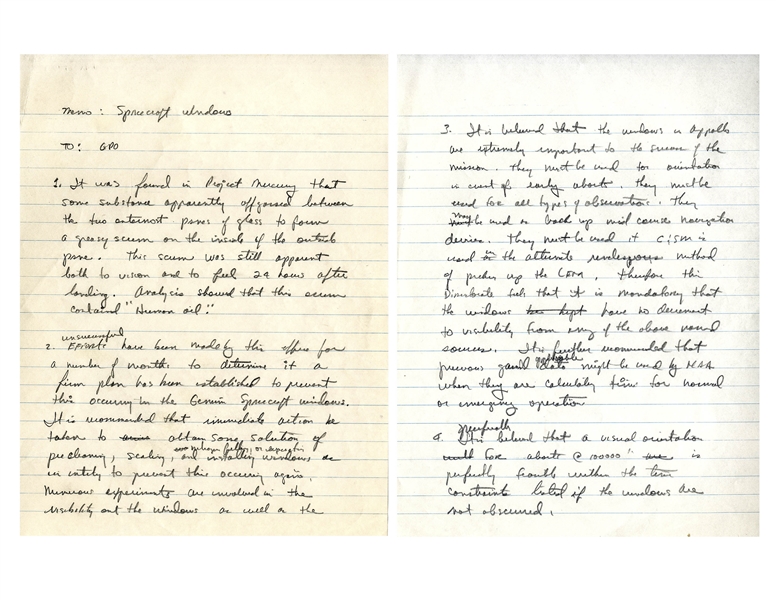 Memo: Spacecraft Windows
TO: GPO
1. It was found in Project Mercury that
some substance apparently offgassed between
the two outermost panes of glass to form
a greasy scum on the inside of the outside
pane. This scum was still apparent
both to vision and to feel 24 hours after
landing. Analysis showed that this scum
contained "Human oil".
unsuccessful
2. Efforts have been made by this office for
a number of months to determine if a
firm plan has been established to prevent
this occurring in the Gemini Spacecraft windows.
It is recommended that immediate action be
taken to attain some solution of
precleaning, sealing, and installing windows as
an entity to prevent this occurring again.
Numerous experiments are involved in the
visibility out the windows as well as the
3. It is believed that the windows in Apollo
are extremely important to the success of the
mission. They must be used for orientation
in event of early aborts. They must be
used for all types of observation. They
may
be used as back up mid course navigation
devices. They must be used if C&SM is
used in the alternate rendezvous method
of picking up the LEM. Therefore this
Directorate feels that it is mandatory that
the windows have no decrement
to visibility from any of the above
sources. It is further recommended that
applicable
previous data might be used by NAA
when they are calculating for normal
or emergency operation
specifically
4. It is believed that a visual orientation
for aborts @ 100000' is
perfectly feasible within the time
constraints listed if the windows are
not obscured.